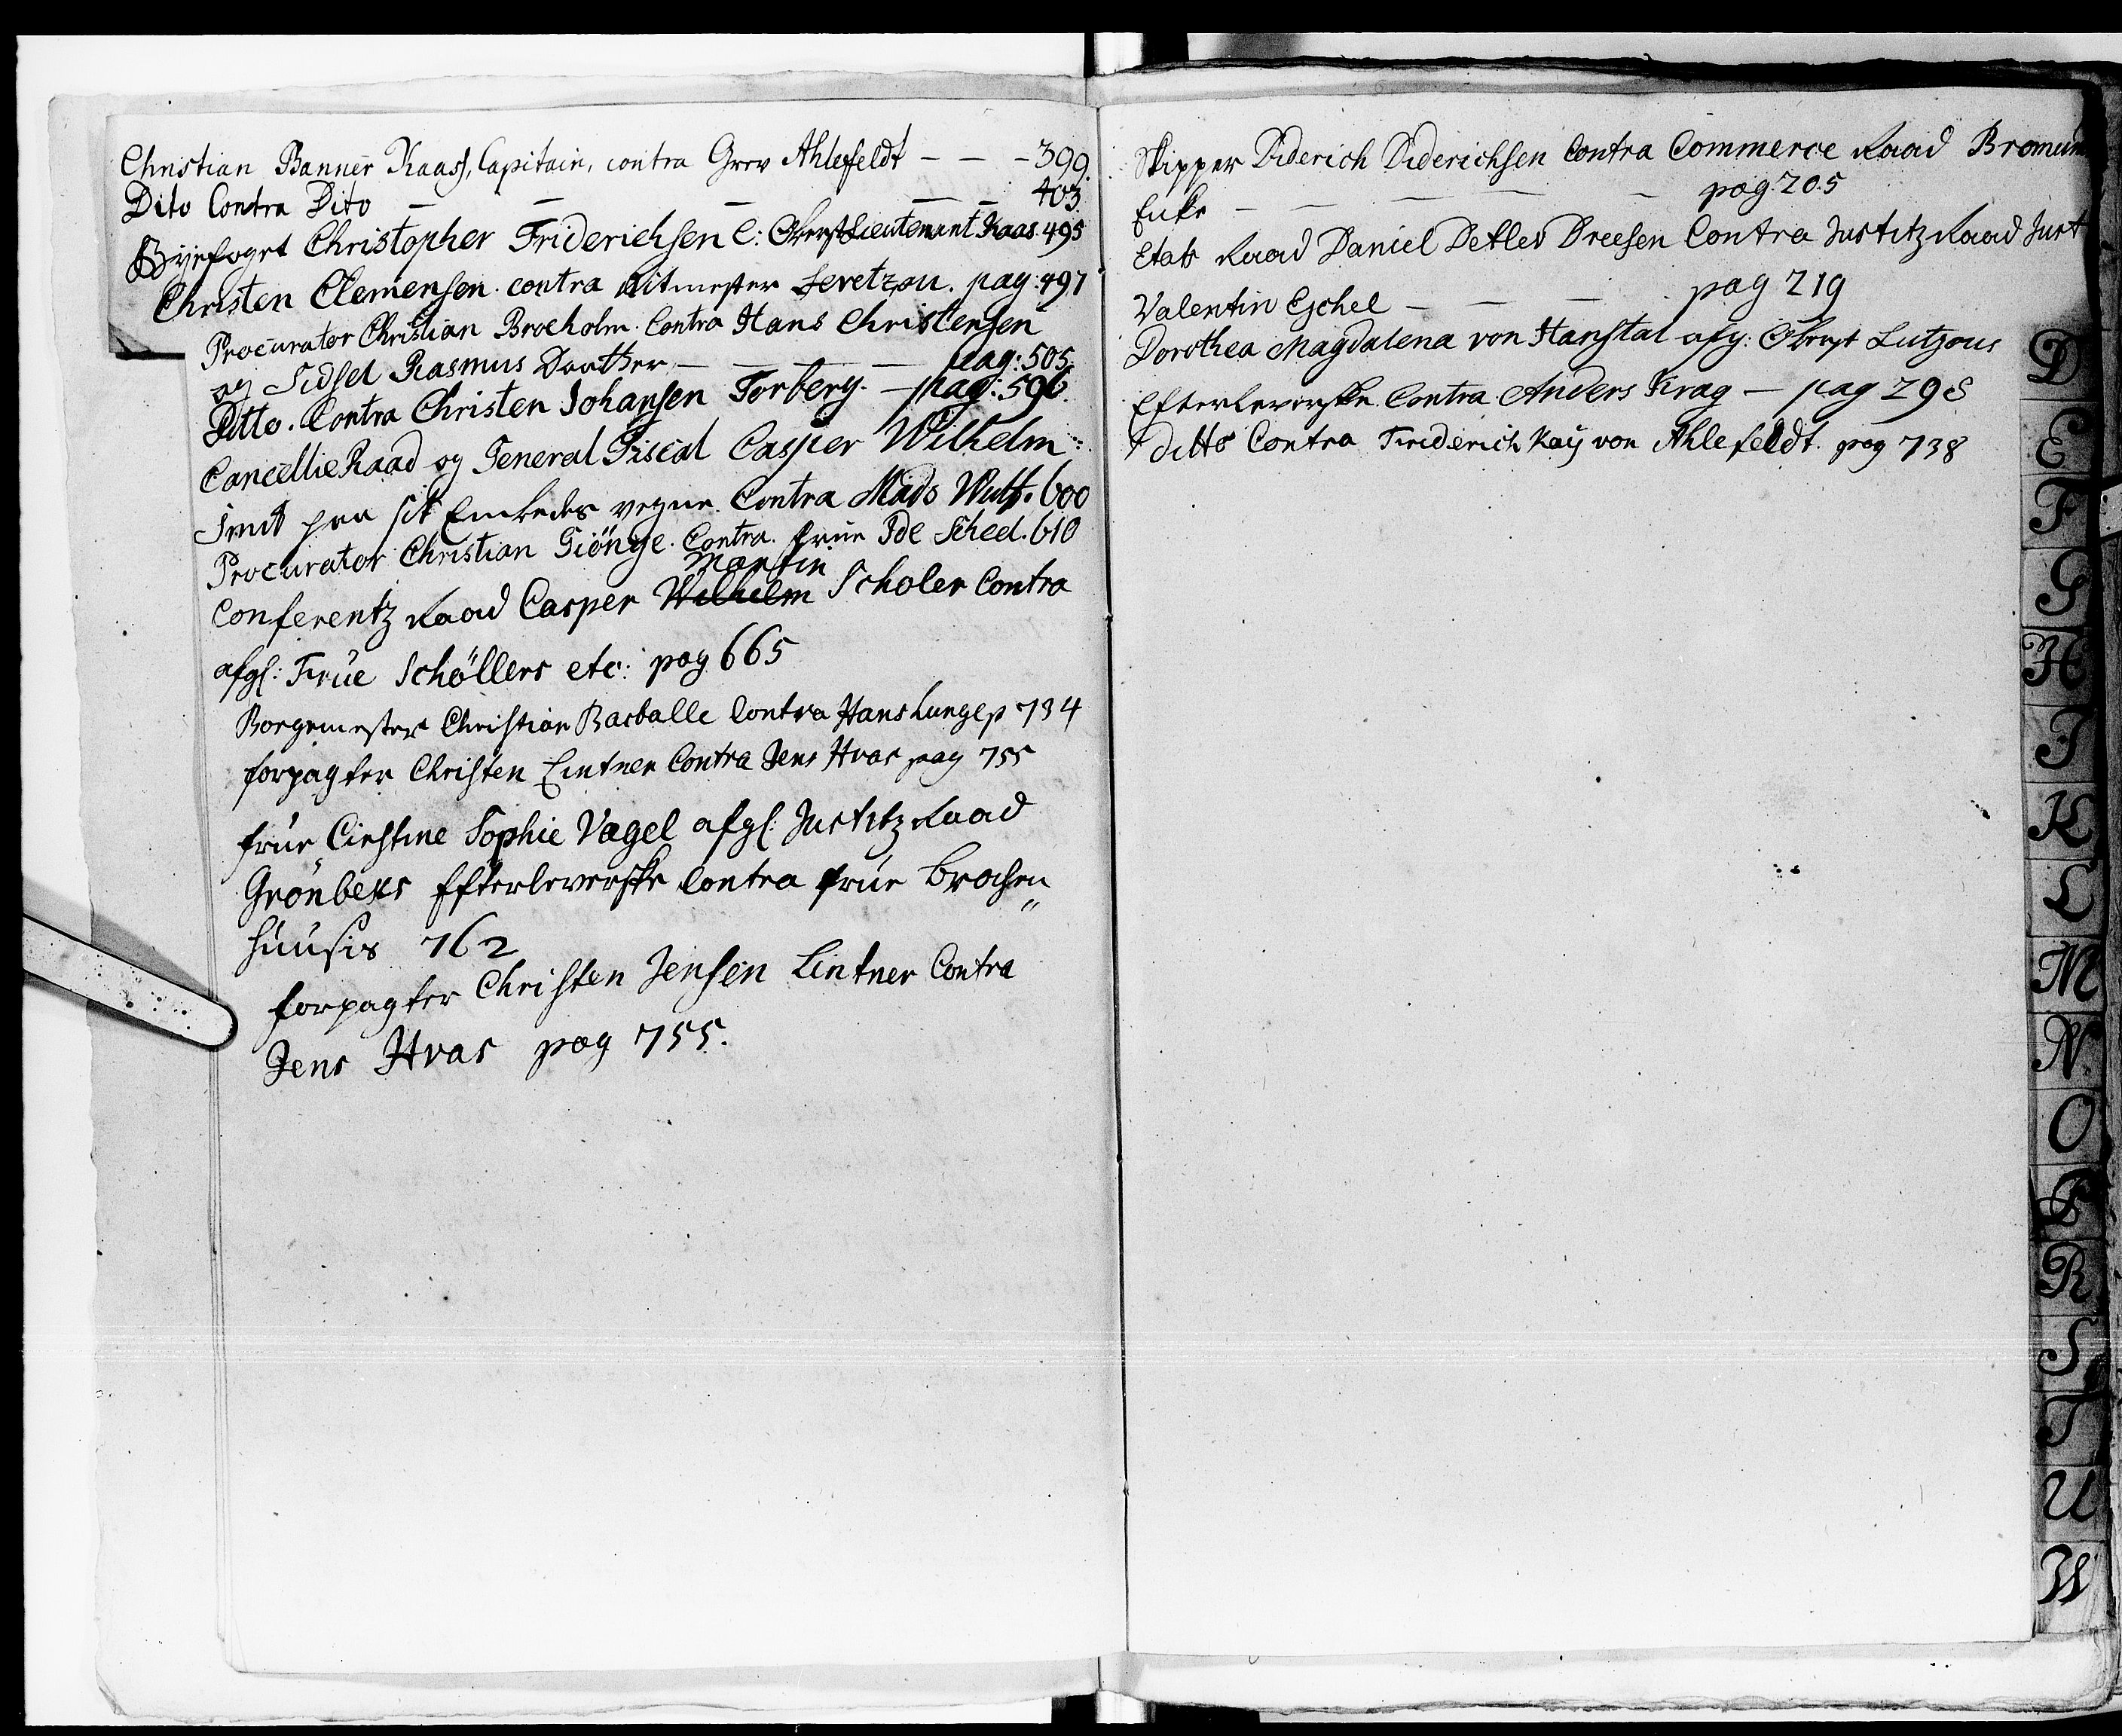 Christian Banner Kaas, Capitain, contra Grev Ahlefeldt — — - 399.
Dito Contra Dito — — — — — 403
Byefoget Christopher Friderichsen C: Oberst Lieutenant Kaas. 495
Christen Clemensen. contra Ritmester Levetzou. pag: 497
Procurator Christian Broeholm. Contra Hans Christensen
og Sidsel Rasmus Daatter — — — — pag: 505.
Ditto. Contra Christen Johansen Torberg. — pag: 596.
Cancellie Raad og General Fiscal Casper Wilhelm
Smit paa sit Embedes vegne. Contra Mads Wulf. 600
Procurator Christian Giönge. Contra. Frue Ide Scheel. 610
Martin
Conferentz Raad Casper Wilhelm Scholer Contra
afgl: Frue Schøllers etc: pag 665
Borgemester Christian Basballe Contra Hans Lunge p 734
forpagter Christen Lintner Contra Jens Hvas pag 755
frue Cirstine Sophie Vagel afgl: Justitz Raad
Grönbeks Efterleverske Contra frue Brochen„
huusis 762
forpagter Christen Jensen Lintner Contra
Jens Hvas pag 755.
Skipper Diderich Diderichsen Contra Commerce Raad
Enke — — — — pag. 205
Etats Raad Daniel Detlev Dreesen Contra Justitz Raad Just
Valentin Eschel — — — pag 219
Dorothea Magdalena von Hanstat afg: Oberst Lutzous
Efterleverske Contra Anders Krag — pag 298
ditto Contra Friderich Kay von Ahlefeldt. pag 738
D
E
F
G
H
I
K
L
M
N.
O
P
R
S
T
U
W